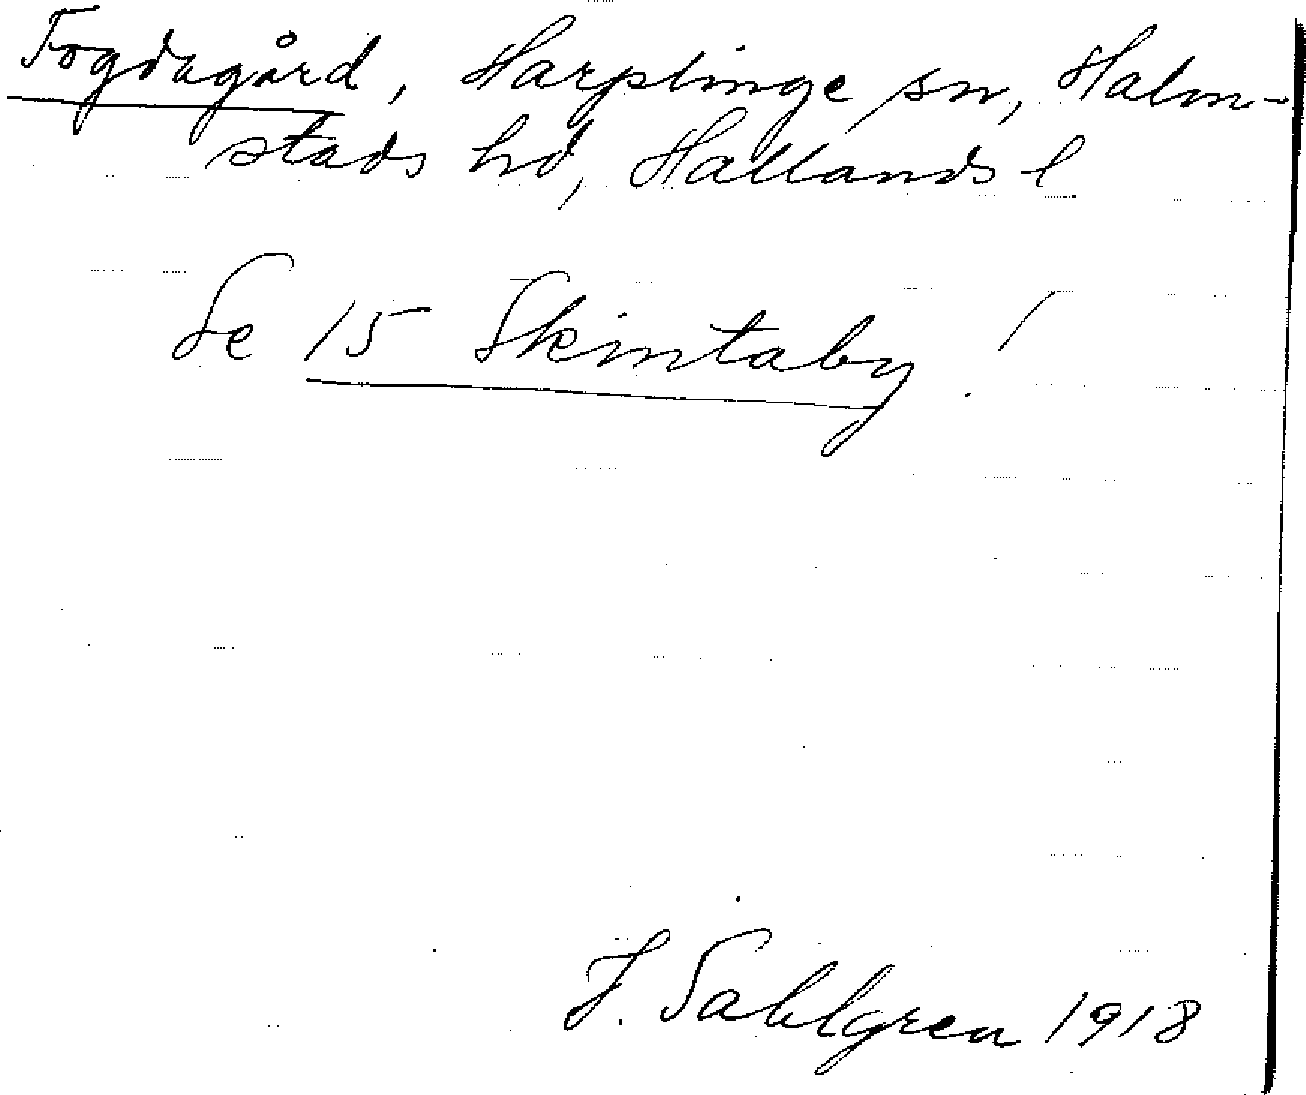 Fogdagård, Harplinge sn, Halm-
stads hd, Hallands l
Se 15 Skintaby!
J. Sahlgren 1918